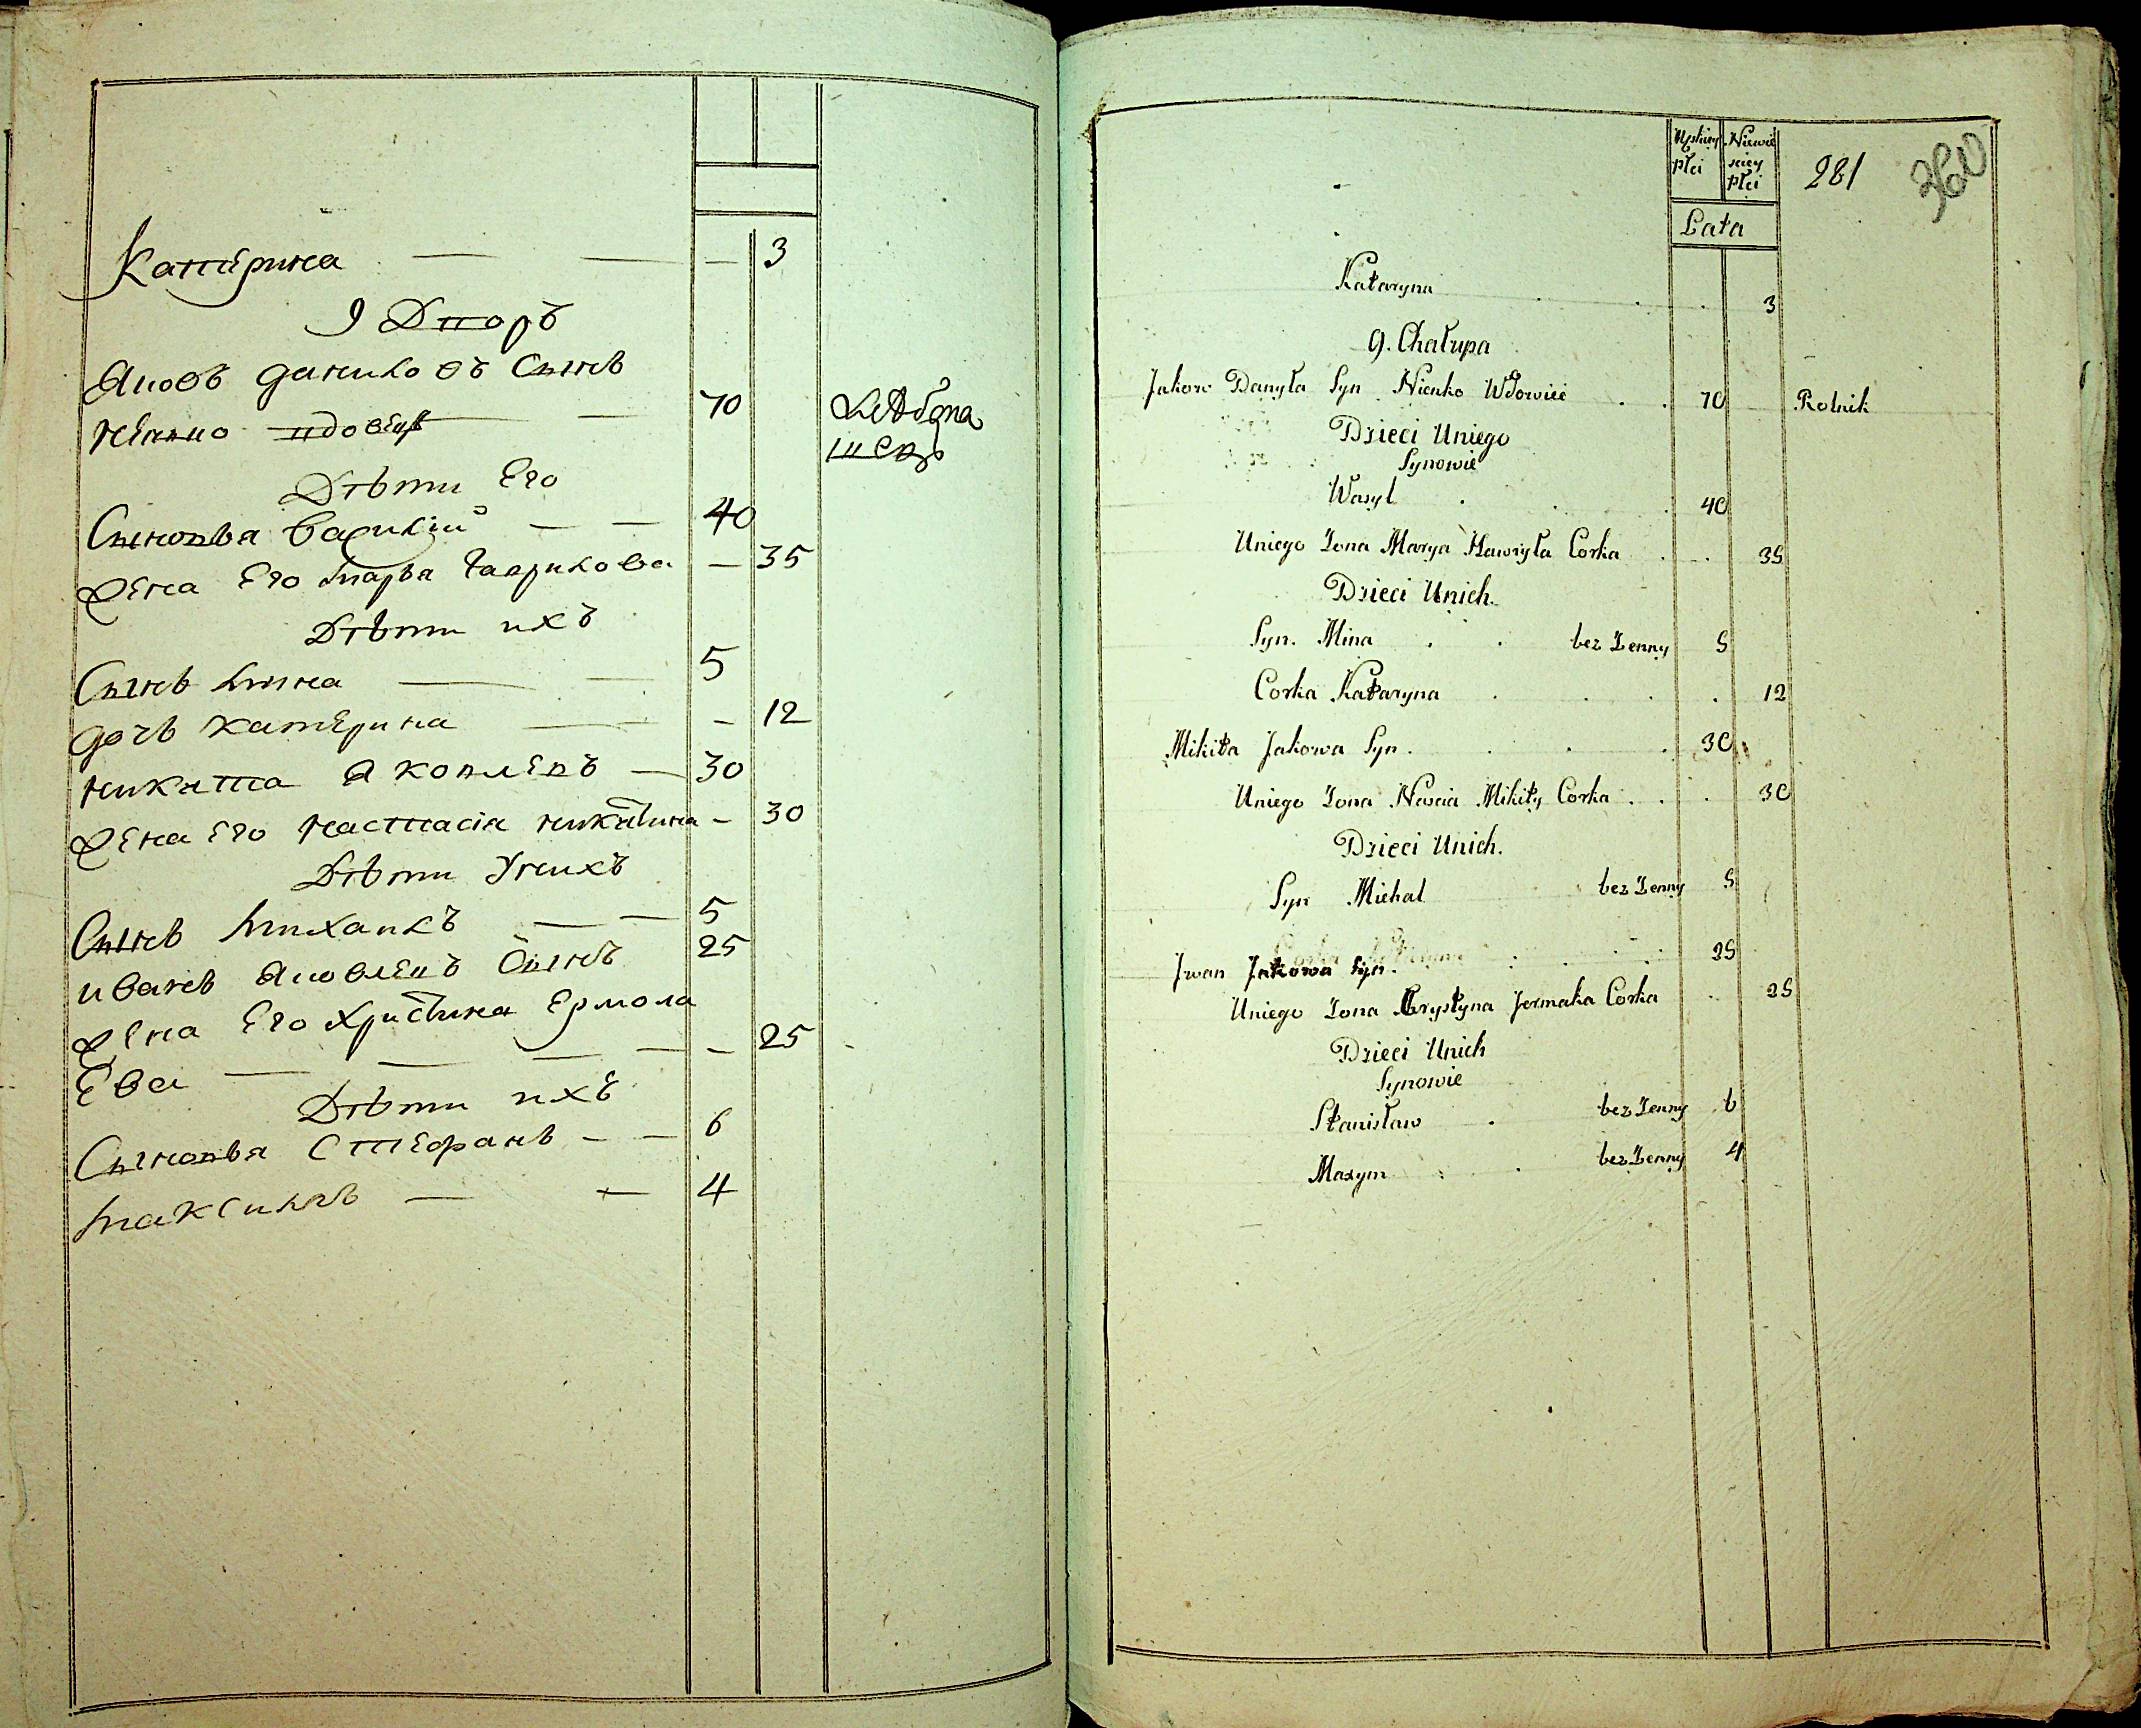 Катерина — — — 3
9 Дворъ
Яковъ данило въ Сынъ
вдовецъ — 70
Дѣти Его
Сыновья Василій — — 40
Жена Его Марья Гаврилова — 35
Дѣти ихъ
Сынъ Мина — — 5
дочь катерина — — 12
никита Яковлевъ — 30
Жена Его настасіа никитина — 30
Дѣти Унихъ
Сынъ Михаилъ — — 5
иванъ Яковлевъ Сынъ 25
Жена Его Христина Ермола
Ева — — — — — 25
Дѣти ихъ
Сыновья Стефанъ — — 6
Максимъ — — 4
Męskiey płci Niewiesciey płci 281 360
Lata
Kataryna 3
9. Chałupa
Jakow Danyła Syn Nienko Wdowiec 70 Rolnik
Dzieci Uniego
Synowie
Wasyl 40
Uniego Zona Marya Hawryła Corka 35
Dzieci Unich.
Syn. Mina bez Zenny 5
Corka Kataryna 12
Mikita Jakowa Syn. 30
Uniego Zona Nascia Mikity Corka 30
Dzieci Unich.
Syn Michal bez Zenny 5
Jwan Jakowa Syn. 25
Uniego Zona Krystyna Jermaka Corka 25
Dzieci Unich
Synowie
Stanisław bez Zenny 6
Maxym bez Zenny 4